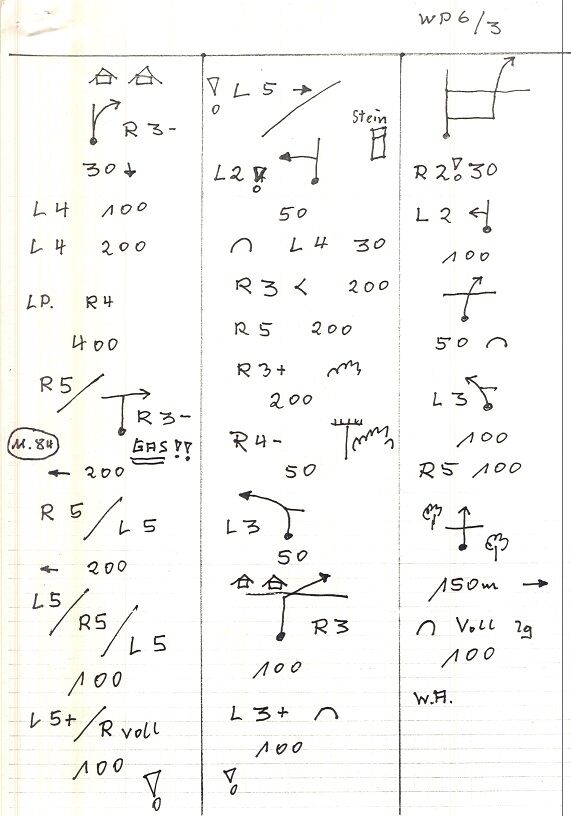 WP6/3
R 3-
30
L 4 100
L 4 200
LP. R4
400
R5 /
R 3-
GAS !!
200
R 5 / L 5
200
L5 / R5 / L 5
100
L 5+ / R voll
100
!
! L 5
Stein
L 2 !
50
L 4 30
R 3 < 200
R 5 200
R 3+
200
R 4-
50
L 3
50
R 3
100
L 3+
100
!
R 2 ! 30
L 2
100
50
L 3
100
R 5 100
150m
Voll
100
W.A.